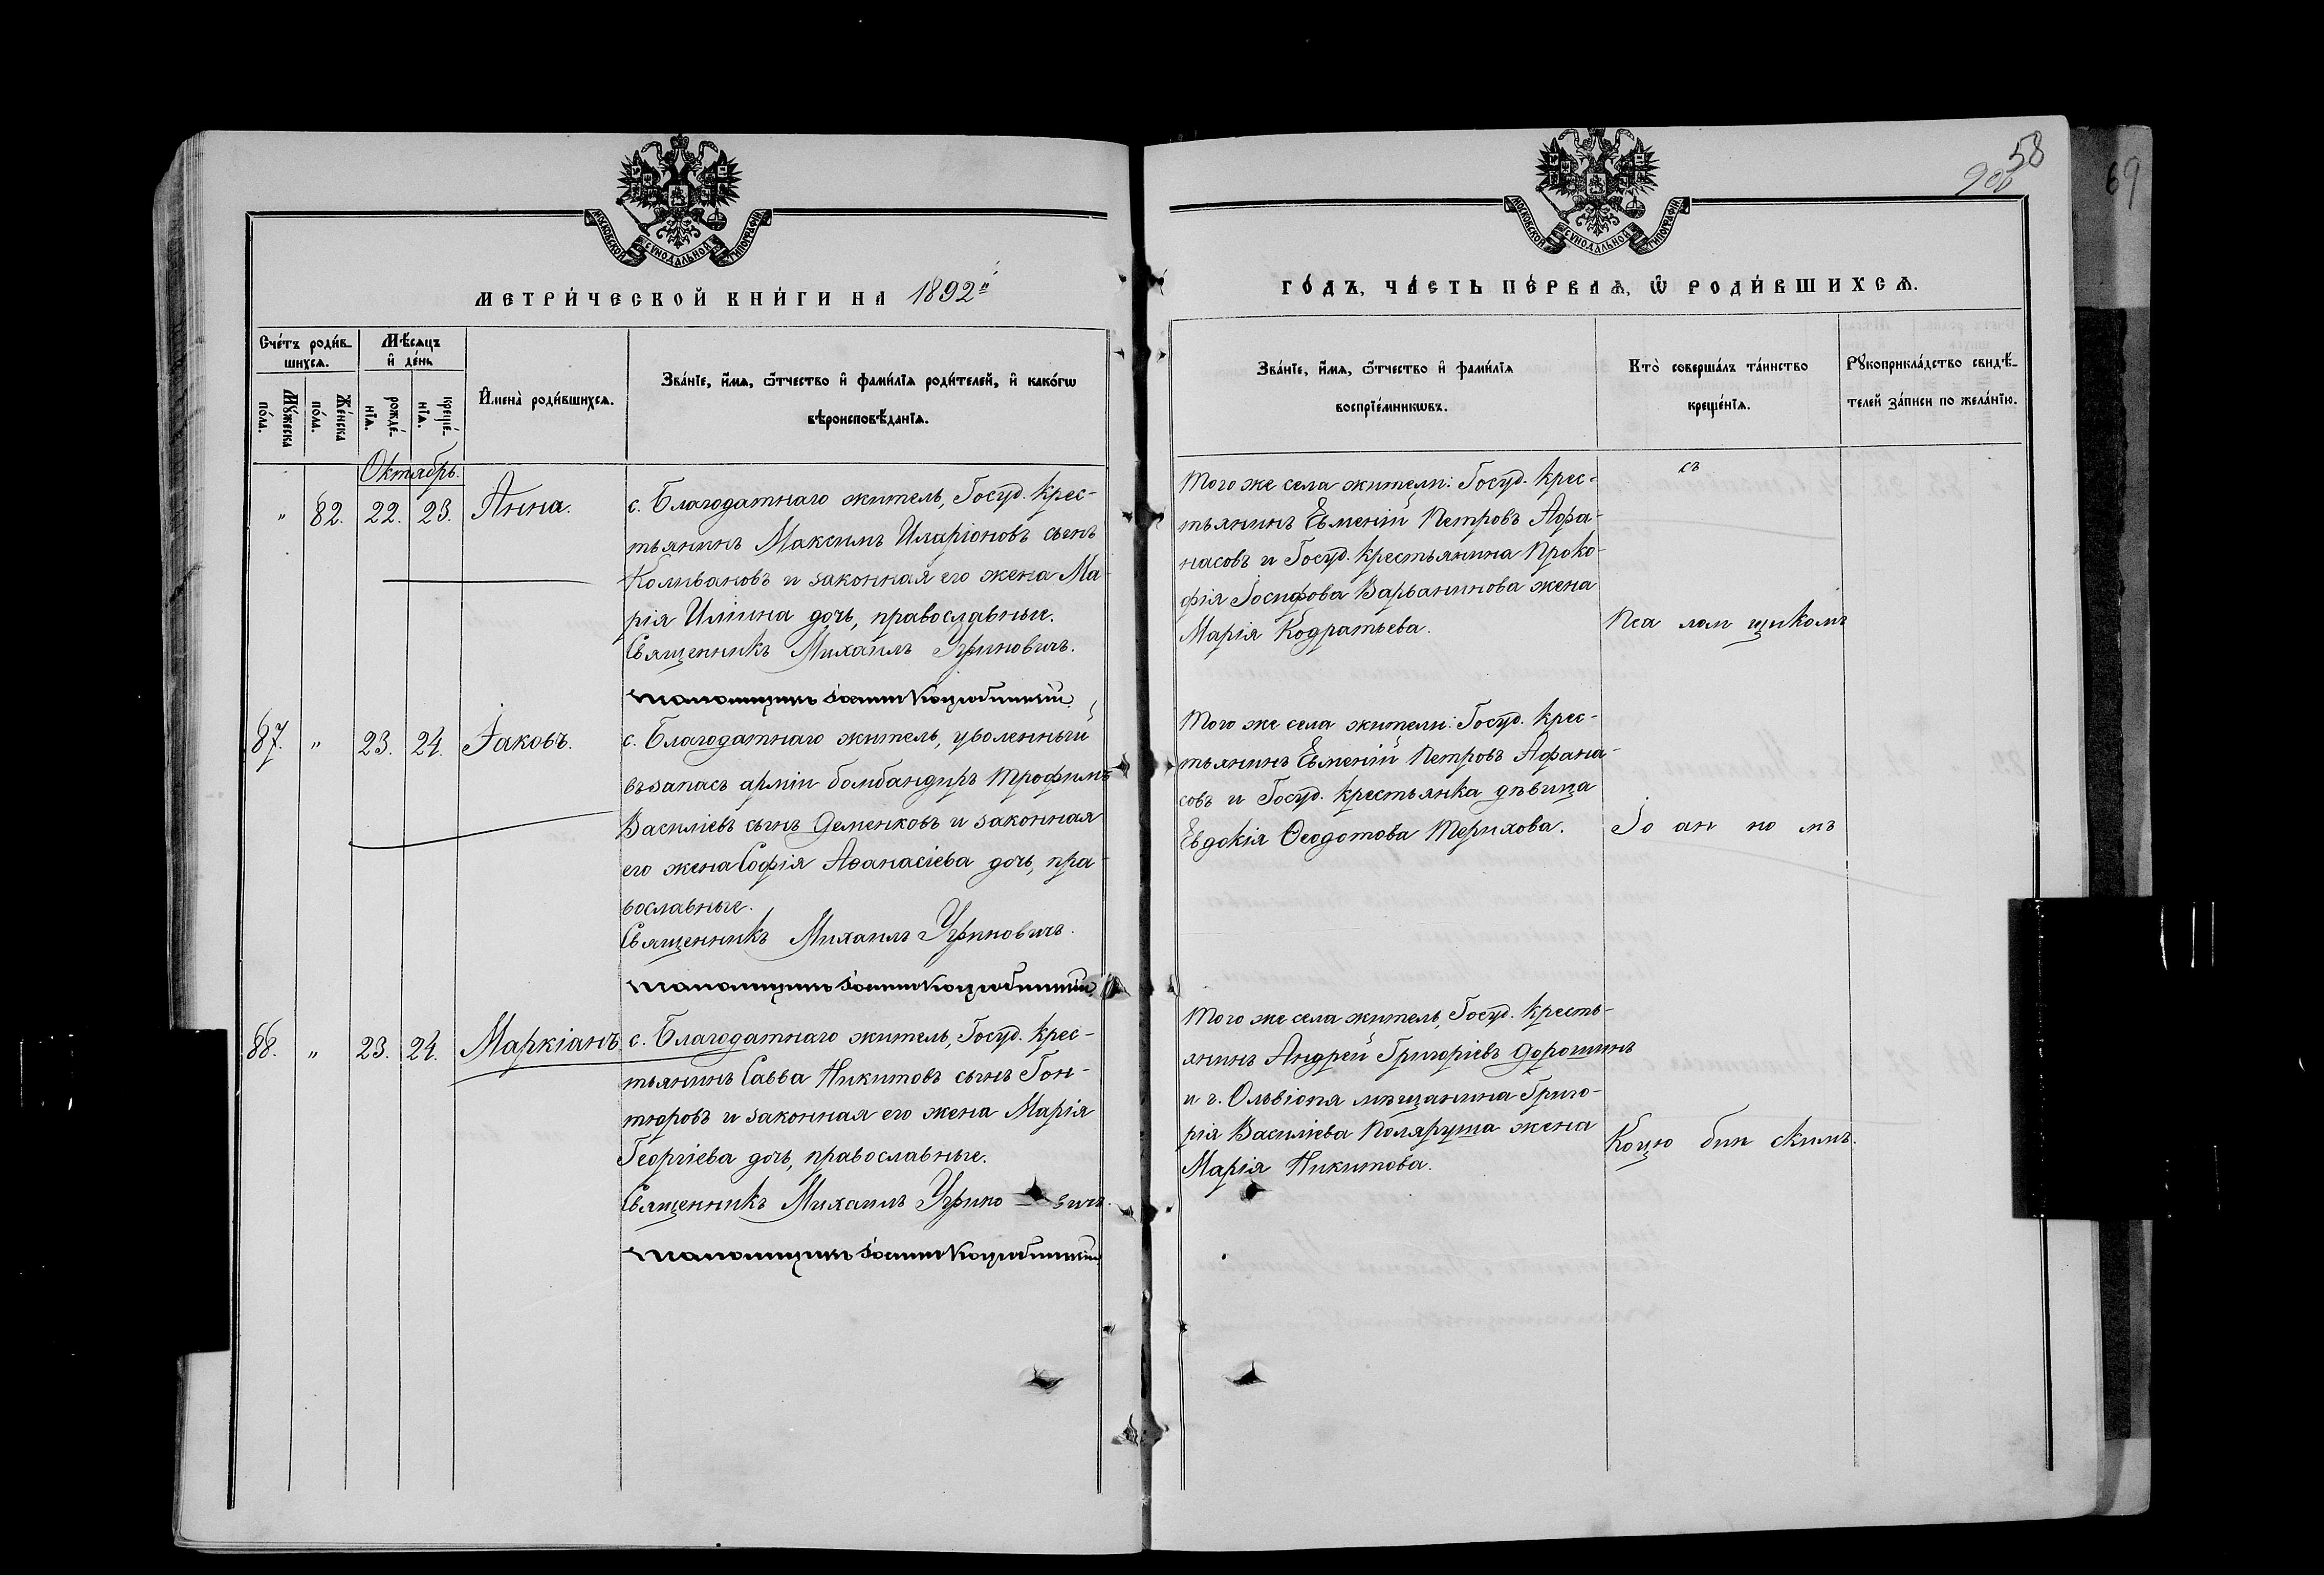 58
906
69
МОСКОВСКОЙ СѴНОДАЛЬНОЙ ТИПОГРАФІИ
МОСКОВСКОЙ СѴНОДАЛЬНОЙ ТИПОГРАФІИ
МЕТРИ́ЧЕСКОЙ КНИ́ГИ НА 1892й
ГО́ДЪ, ЧА́СТЬ ПЕ́РВАѦ, Ѽ РОДИ́ВШИХСѦ.
Сче́тъ роди́в-
шихсѧ.
Мꙋ́жеска по́ла.
Же́нска по́ла.
Мѣ́сяцъ
и҆ де́нь
рожде́-
нїѧ.
креще́-
нїѧ.
И҆мена̀ роди́вшихсѧ.
Зва́нїе, и҆́мѧ, ѻ҆́тчество и҆ фами́лїѧ роди́телей, и҆ како́гѡ
вѣроисповѣ́данїѧ.
Зва́нїе, и҆́мѧ, ѻ҆́тчество и҆ фами́лїѧ
воспрїе́мникѡвъ.
Кто̀ соверша́лъ та́инство
креще́нїѧ.
Рꙋкоприкла́дство свидѣ́-
телей за́писи по жела́нїю.
Октябрь.
" 82. 22. 23. Анна.
с. Благодатнаго житель, Госуд. крес-
тьянинъ Максимъ Иларіоновъ сынъ
Коливановъ и законная его жена Ма-
рія Иліина дочь, православные.
Священникъ Михаилъ
Того же села жители: Госуд. крес-
тьянинъ Евменій Петровъ Афа-
насовъ и Госуд. крестьянина Проко-
фія Іосифова Варванинова жена
Марія Кодратьева.
съ
Пса лом щикомъ
87. " 23. 24. Іаковъ.
с. Благодатнаго житель, уволенный
въ запасъ арміи бомбандиръ Трофимъ
Василіевъ сынъ Деменковъ и законная
его жена Софія Аѳанасіева дочь, пра-
вославные.
Священникъ Михаилъ
Того же села жители: Госуд. крес-
тьянинъ Евменій Петровъ Афана-
совъ и Госуд. крестьянка дѣвица
Евдокія Ѳеодотова Терихова.
Іо ан но мъ
88. " 23. 24. Маркіанъ
с. Благодатнаго житель, Госуд. крес-
тьянинъ Савва Никитовъ сынъ Гон-
тюровъ и законная его жена Марія
Георгіева дочь, православные.
Священникъ Михаилъ
Того же села житель, Госуд. кресть-
янинъ Андрей Григоріевъ Дорошинъ
и г. Ольвіопя мѣщанина Григо-
рія Василіева Поляруша жена
Марія Никитова.
Коцю бин скимъ.